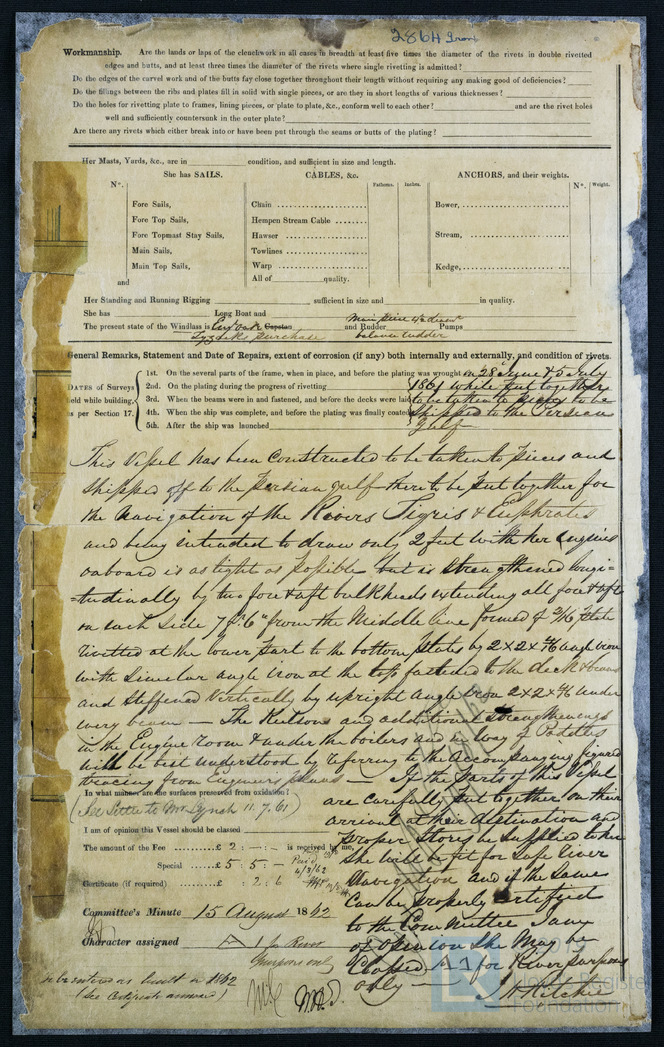 286H Iron
Workmanship. Are the lands or laps of the clenchwork in all cases in breadth at least five times the diameter of the rivets in double rivetted
edges and butts, and at least three times the diameter of the rivets where single rivetting is admitted?
Do the edges of the carvel work and of the butts fay close together throughout their length without requiring any making good of deficiencies?
Do the fillings between the ribs and plates fill in solid with single pieces, or are they in short lengths of various thicknesses?
Do the holes for rivetting plate to frames, lining pieces, or plate to plate, &c., conform well to each other? and are the rivet holes
well and sufficiently countersunk in the outer plate?
Are there any rivets which either break into or have been put through the seams or butts of the plating?
Her Masts, Yards, &c., are in condition, and sufficient in size and length.
She has SAILS. CABLES, &c. Fathoms. Inches. ANCHORS, and their weights. Nº. Weight.
Nº.
Fore Sails, Chain Bower,
Fore Top Sails, Hempen Stream Cable
Fore Topmast Stay Sails, Hawser Stream,
Main Sails, Towlines
Main Top Sails, Warp Kedge,
and All of quality.
Her Standing and Running Rigging sufficient in size and in quality.
She has Long Boat and
The present state of the Windlass is Eng oak Capstan and Rudder Main piece Pumps
purchase balance rudder
General Remarks, Statement and Date of Repairs, extent of corrosion (if any) both internally and externally, and condition of rivets.
DATES of Surveys
held while building,
as per Section 17.
1st. On the several parts of the frame, when in place, and before the plating was wrought on 28 June & 5 July
2nd. On the plating during the progress of rivetting 1861 while put together
3rd. When the beams were in and fastened, and before the decks were laid to be taken to pieces to be
4th. When the ship was complete, and before the plating was finally coated shipped to the Persian
5th. After the ship was launched Gulf
This Vessel has been Constructed to be taken to pieces and
shipped off to the Persian gulf there to be put together for
the Navigation of the Rivers Tigris & Euphrates
and being intended to draw only 2 feet with her Engines
onboard is as light as possible but is strengthened longi=
=tudinally by two fore & aft bulkheads extending all fore & aft
on each side 7 ft 6" from the Middle line formed of 2/16 plate
rivetted at the lower part to the bottom plates by 2 x 2 x angle iron
with similar angle iron at the top fastened to the deck & beams
and stiffened vertically by upright angle iron 2 x 2 x under
every beam — The Kelsons and additional strengthenings
in the Engine room & under the boilers and in way of Paddles
will be best understood by referring to the Accompanying figured
tracing from Engineers plans — If the parts of this Vessel
are carefully put together on their
arrival at their destination and
proper stores be supplied to her
She will be fit for safe River
Navigation and if the same
can be properly certified
to the Committee I am
of opinion she may be
Classed A 1 for River purposes
only —
J H Ritchie
In what manner are the surfaces preserved from oxidation?
(See Letter to Mr Lynch 11.7.61)
I am of opinion this Vessel should be classed
The amount of the Fee £ 2 : — : — is received by me,
Special £ 5 : 5 : — Paid
4/3/62
Certificate (if required) £ : 2 : 6
Committee's Minute 15 August 1862
Character assigned A 1 for River
purposes only
to be entered as built in 1862
(See Certificate annexed)
Lloyd's Register
Foundation